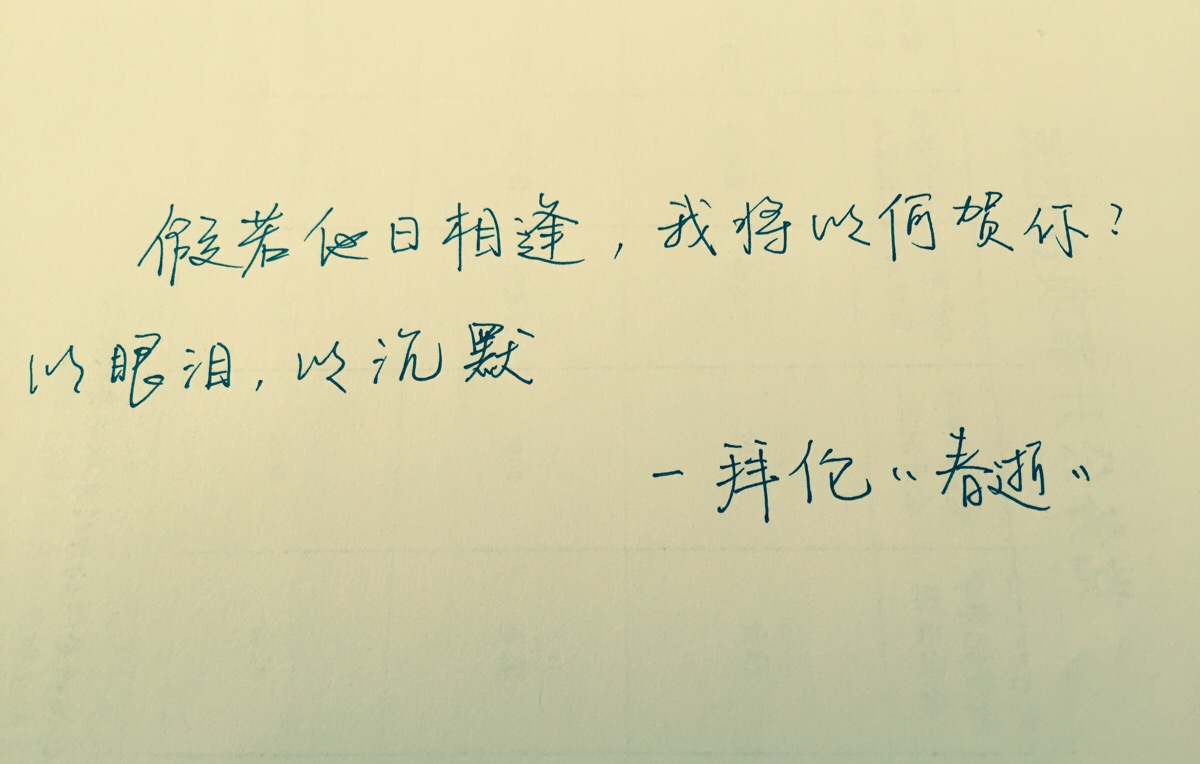 假若他日相逢，我将以何贺你？
以眼泪，以沉默
—拜伦《春逝》